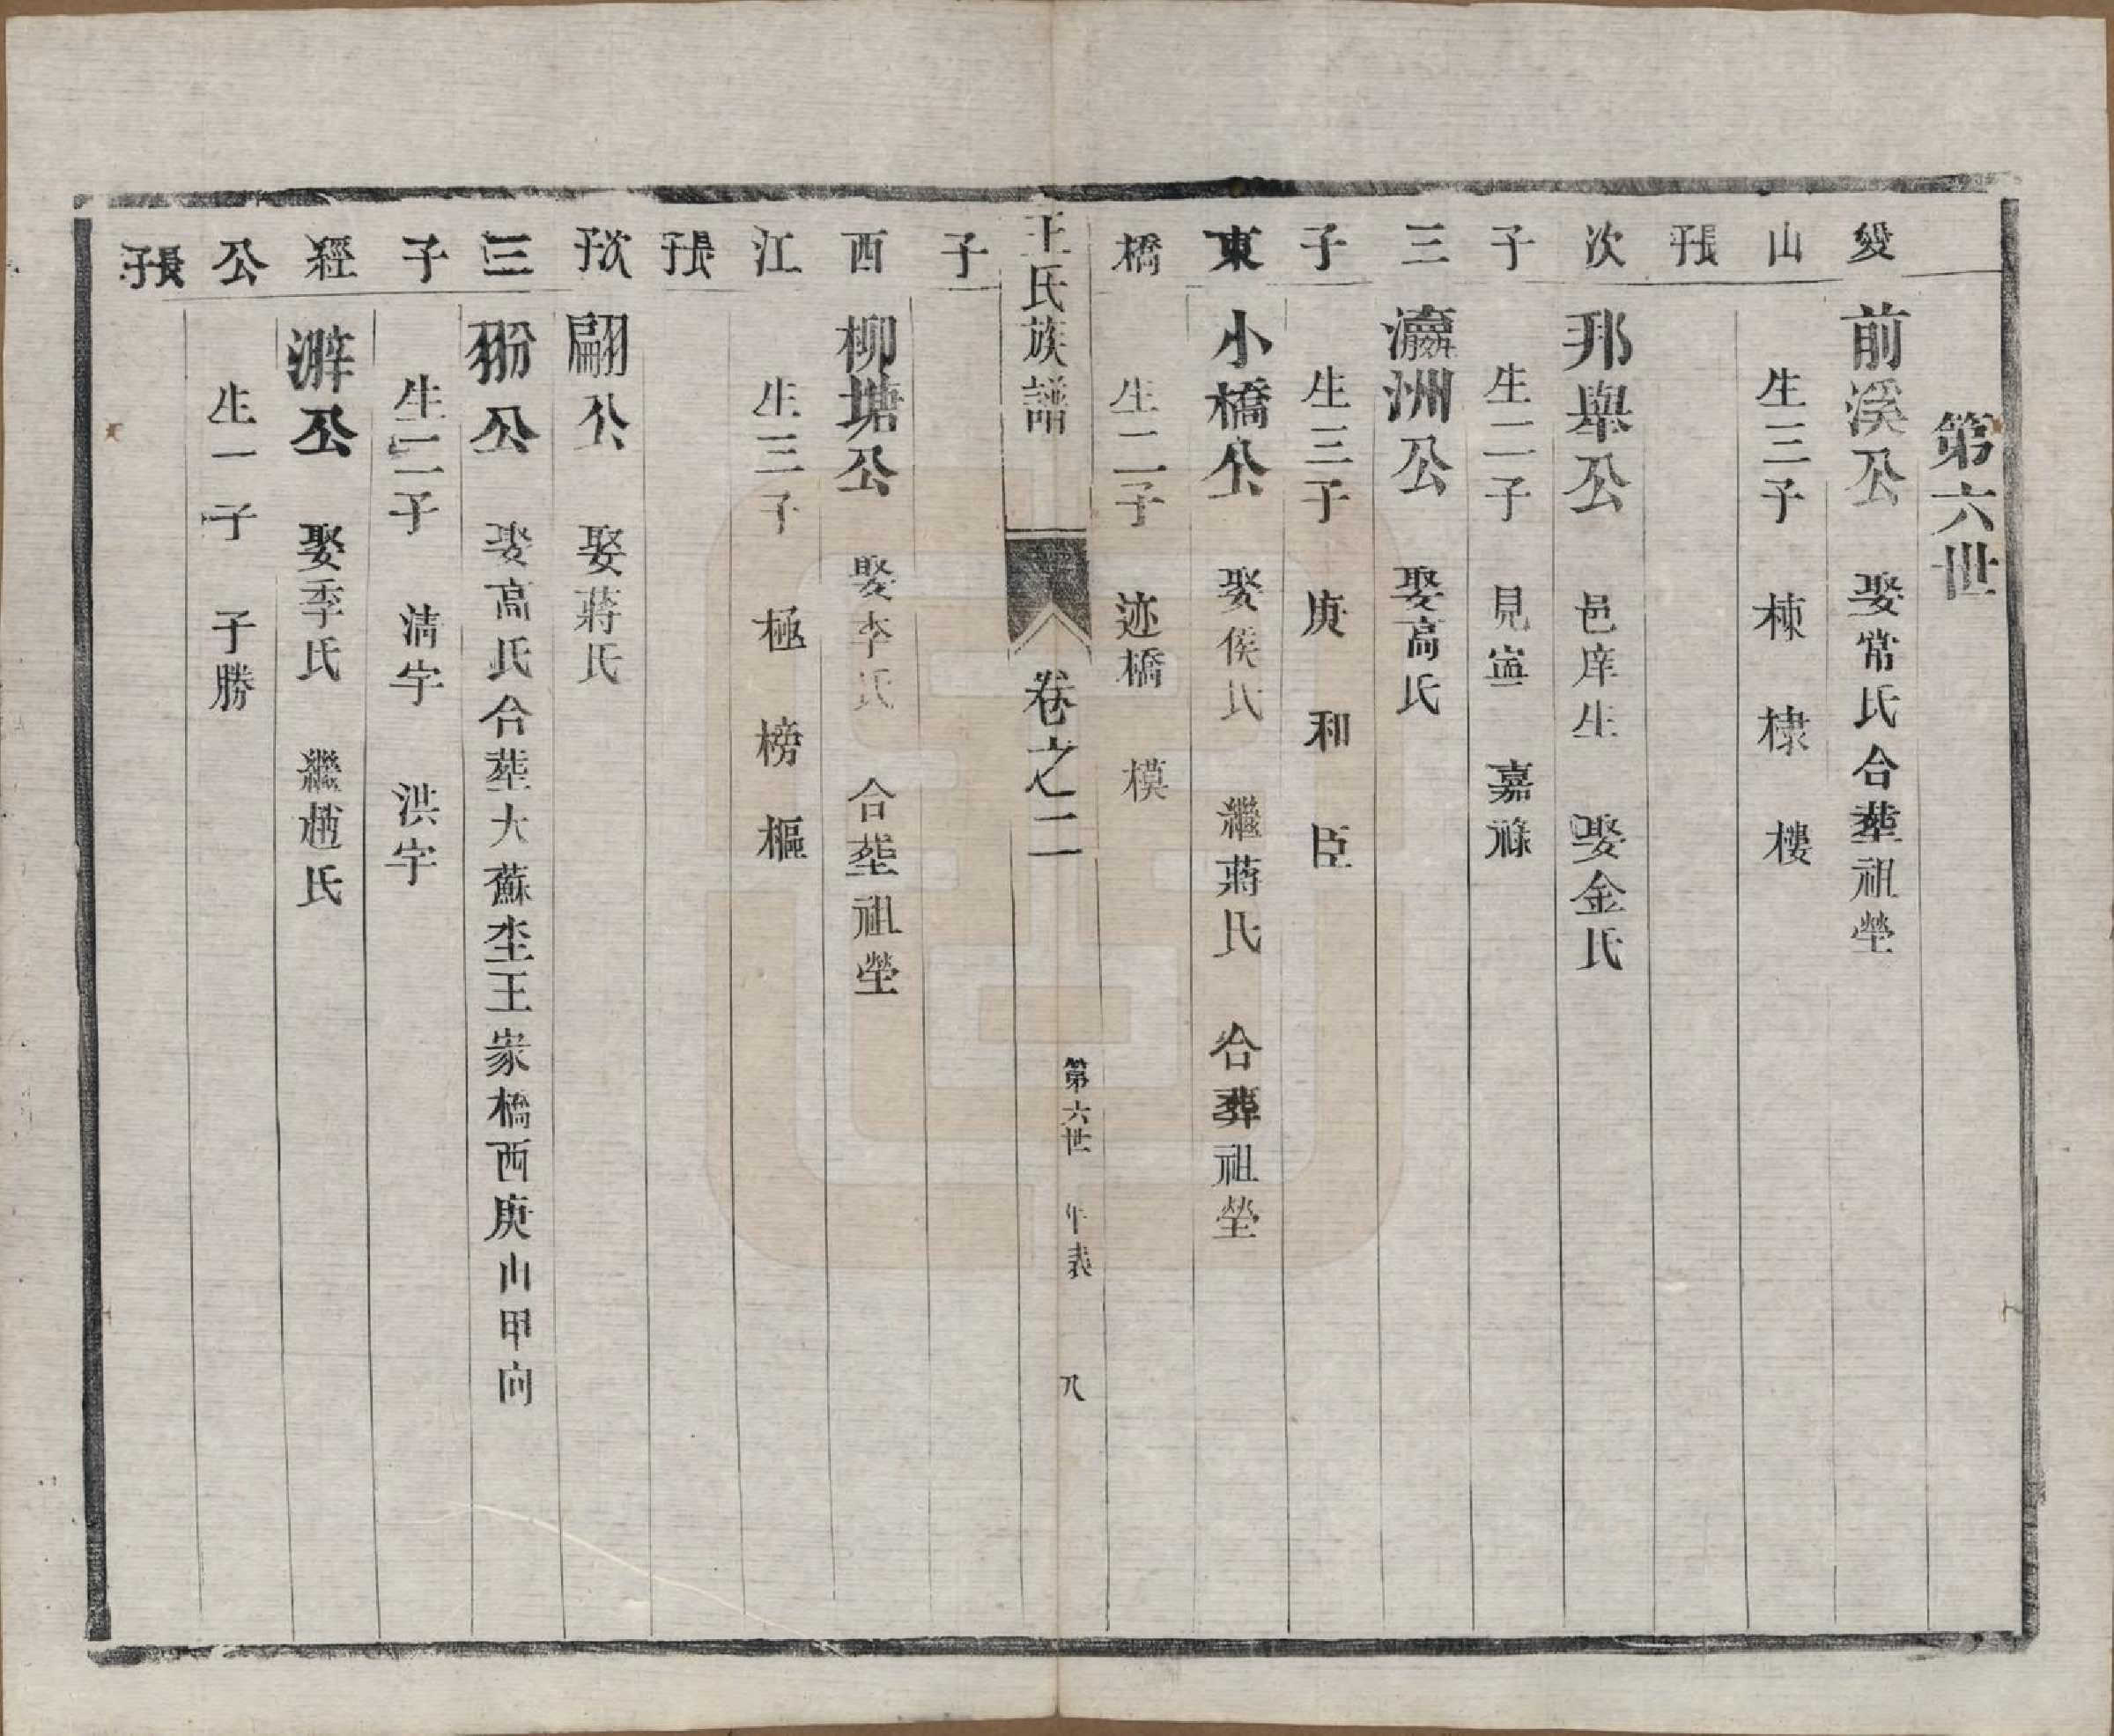 第六世
愛 前溪公 娶常氏合塟祖塋
山 生三子 棟 棣 樓
長子
次 邦舉公 邑庠生 娶金氏
子 生二子 見寍 嘉祿
三 瀛洲公 娶高氏
子 生三子 庚 和 臣
東 小橋公 娶侯氏 繼蔣氏 合葬祖塋
橋 生二子 迹橋 模
王氏族譜 卷之二 第六世 年表 八
子
西 柳塘公 娶李氏 合塟祖塋
江 生三子 極 榜 樞
長子
次子 翩公 娶蔣氏
三 翂公 娶高氏合塟大蘇庄王家橋西庚山甲向
子 生二子 清宇 洪宇
經 澥公 娶李氏 繼趙氏
公 生一子 子勝
長子